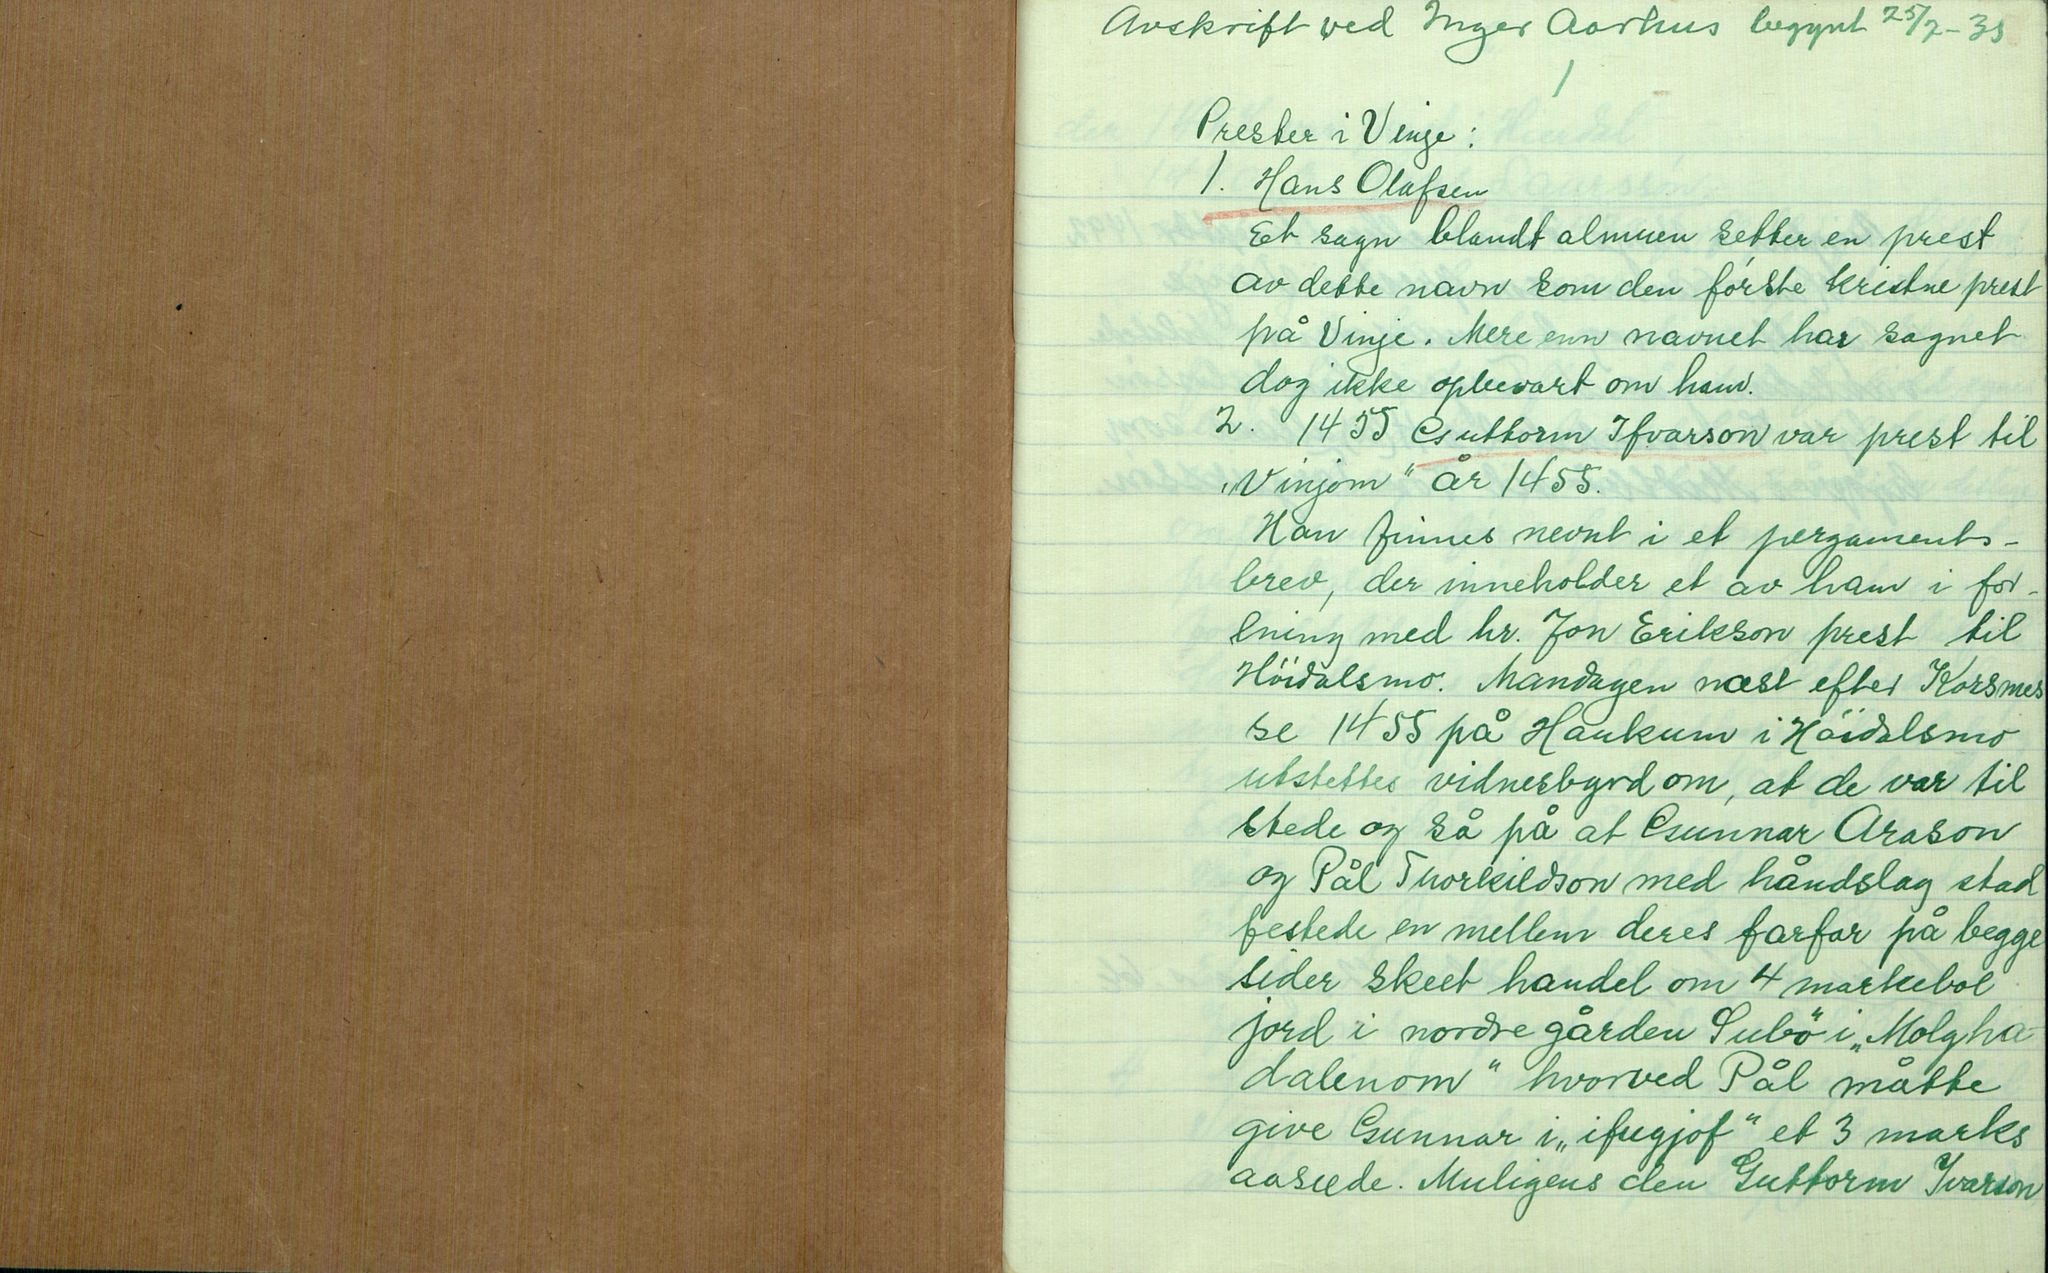 Avskrift ved Inger Aarhus begynt 25/2-35
1
Prester i Vinje:
1. Hans Olafsen
Et sagn blandt almuen setter en prest
av dette navn som den første kristne prest
på Vinje. Mere enn navnet har sagnet
dog ikke opbevart om ham.
2. 1455 Guttorm Ifvarson var prest til
„Vinjom" år 1455.
Han finnes nevnt i et pergaments-
brev, der inneholder et av ham i for-
ening med hr. Jon Erikson prest til
Höidalsmo. Mandagen næst efter Korsmes
se 1455 på Haukum i Höidalsmo
utstettes vidnesbyrd om, at de var til
stede og så på at Gunnar Arason
og Pål Thorkildson med håndslag stad
festede en mellem deres farfar på begge
sider skeet handel om 4 markebol
jord i nordre gården Subö" i „Molgha-
dalenom" hvorved Pål måtte
give Gunnar i „ifugjof" et 3 marks
aasæde. Muligens den Guttorm Ivarson,